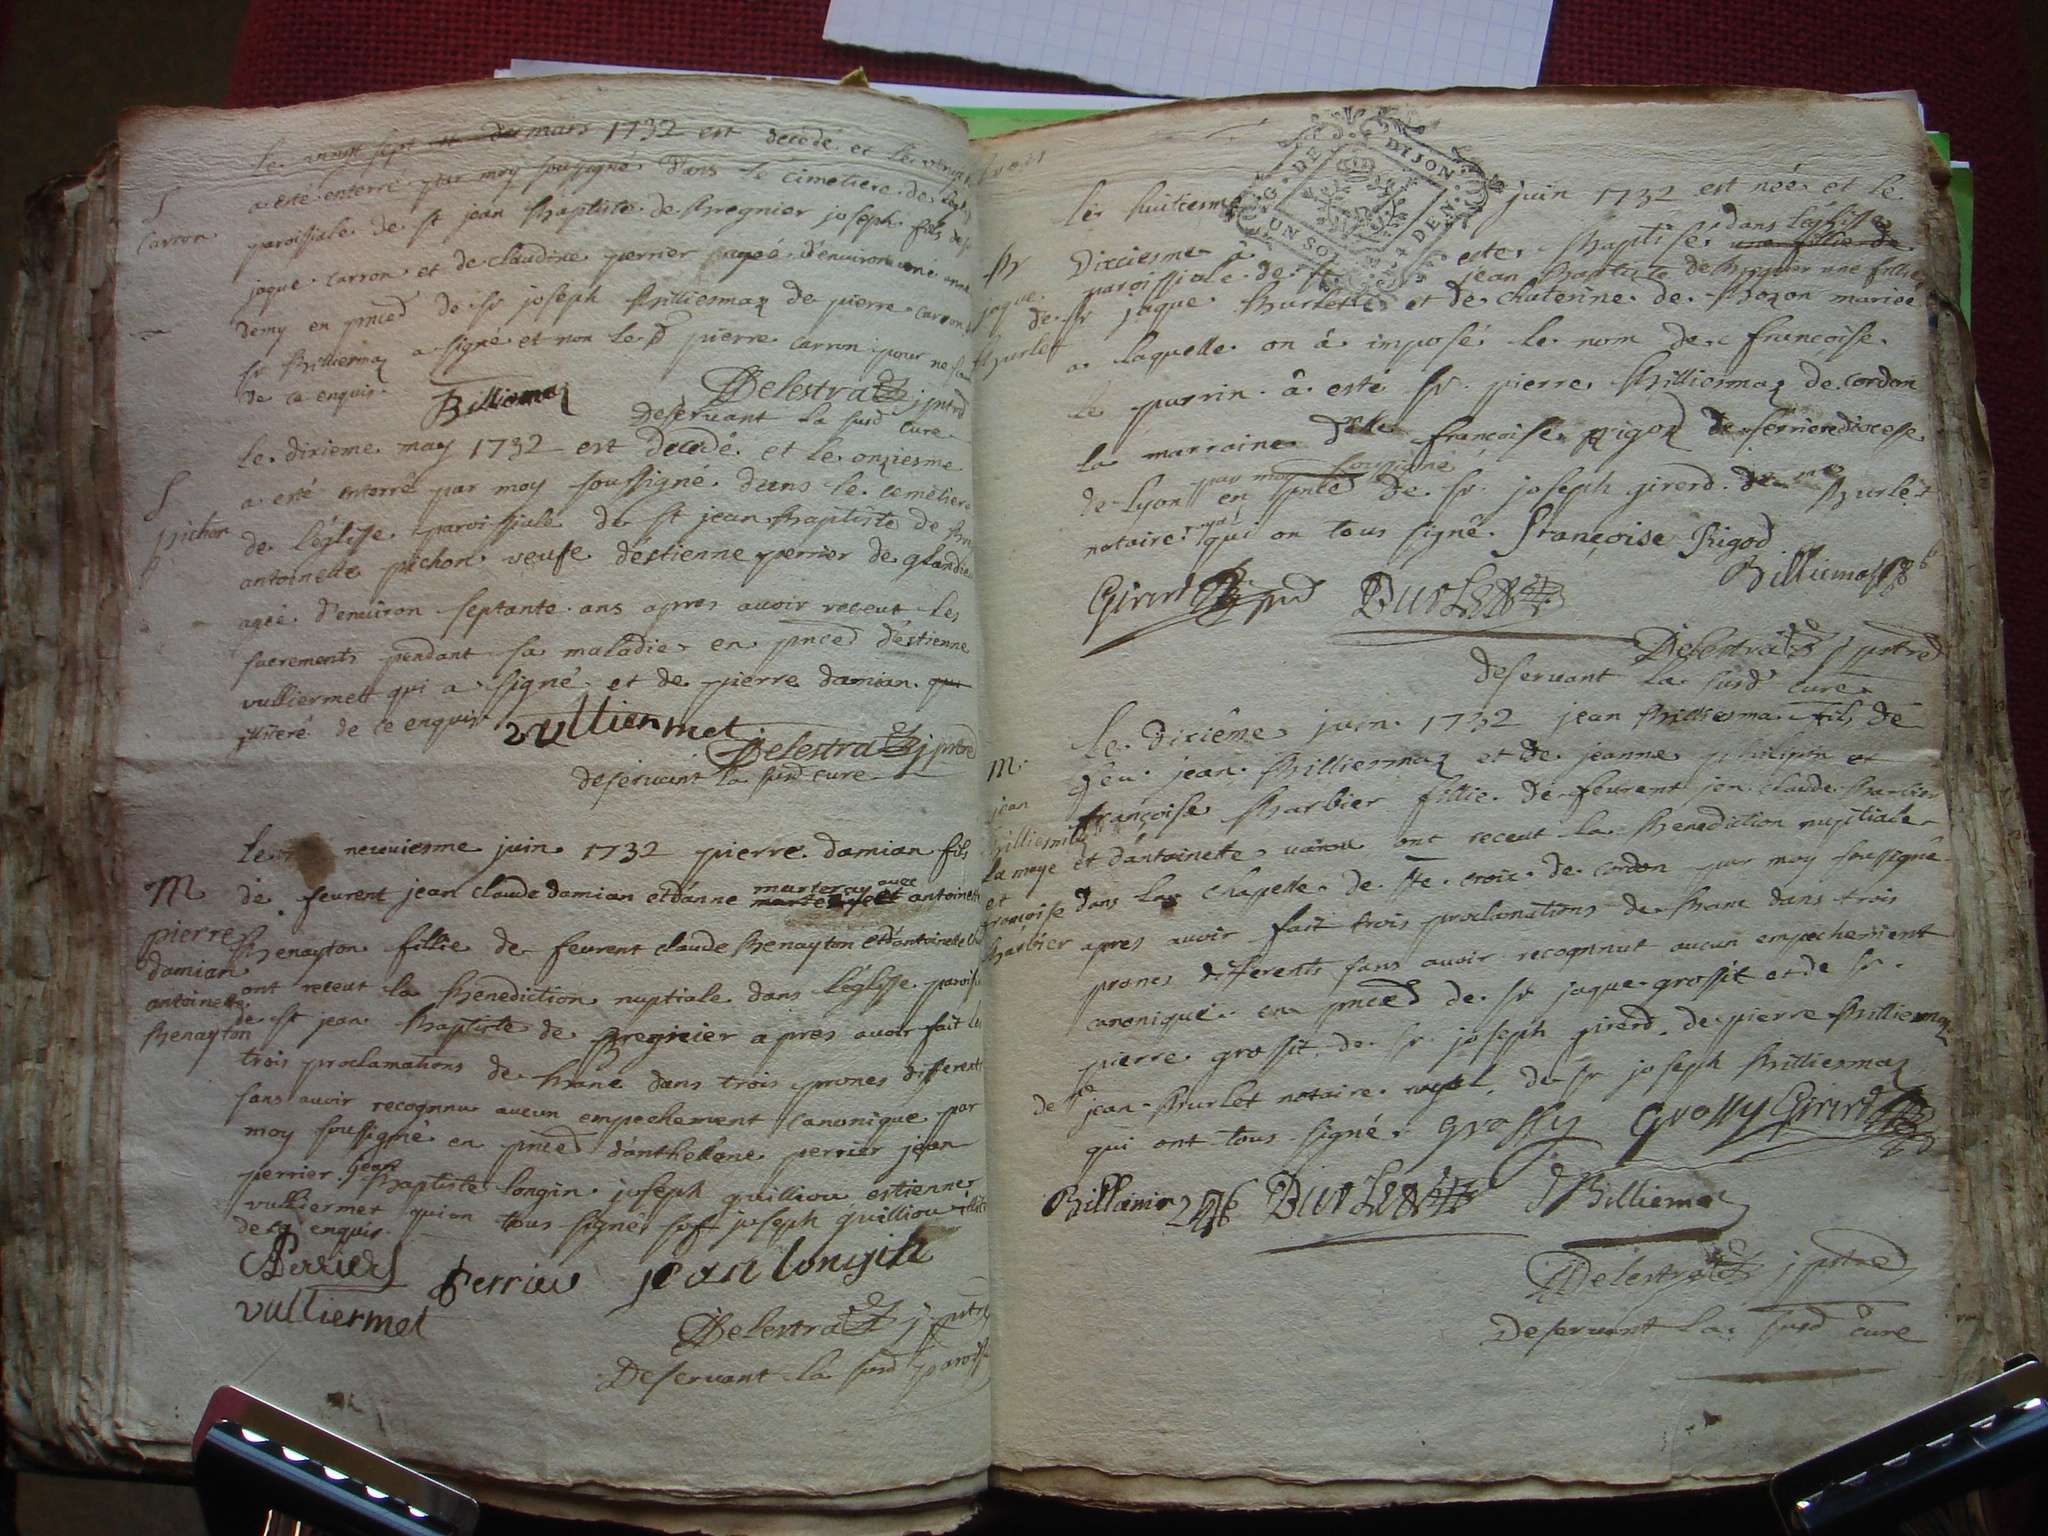 S
Carron
mars 1732 est decedé et le
a esté enterré par moy soussigné dans le cimetiere de
paroissiale de st jean Baptiste de Bregnier joseph fils de
jaque Carron et de claudine perrier agée d'environ une anné
demy en pnced de sr joseph Billiemaz de pierre Carron
sr Billiemaz a signé et non le d pierre Carron pour ne
de ce enquis
Billiemaz
Delestraz j ptred
deservant la susd cure
S
pichon
le dixieme may 1732 est decedé et le onziesme
a esté enterré par moy soussigné dans le cemetiere
de l'églisse paroissiale de st jean Baptiste de
antoinette pichon veufe d'estienne perrier de glandieu
agée d'environ septante ans apres avoir receut les
sacrements pendant sa maladie en pnced d'estienne
vulliermet qui a signé et de pierre damian
illiteré de ce enquis
vulliermet
Delestraz j ptred
deservant la susd cure
M
pierre
damian
antoinette
Benayton
le neuviesme juin 1732 pierre damian fils
de feurent jean claude damian et d'anne marteray avec antoinette
Benayton fillie de feurent claude Benayton et d'antoinette
ont receut la Benediction nuptiale dans l'églisse
de st jean Baptiste de Bregnier apres avoir fait les
trois proclamations de bane dans trois prones differents
sans avoir recognnu aucun empechement canonique par
moy soussigné en pnced d'anthelene perrier jean
perrier jean Baptiste longin joseph guilliou estienne
vulliermet qui on tous signé sof joseph guilliou
de ce enquis
Perrier perrier jean longin
vulliermet
Delestraz j ptred
Deservant la susd
sr
jaque
Burlet
G. DE DIJON
UN SOL 4 DEN.
le huitiesme juin 1732 est née et le
dixciesme à esté Baptisé dans l'églisse
paroissiale de st jean Baptiste de Bregnier une fillie
de sr jaque Burlette et de chaterine de Bozon mariée
a laquelle on á imposé le nom de francoise
le parrin â esté sr pierre Billiemaz de cordon
la marraine delle francoise rigod de serriere diocesse
de lyon par moy soussigné en pnced de sr joseph girerd de Burlet
notaire royal qui on tous signé françoise Rigod
Girerd Burlet Billiemaz
Delestraz j ptred
deservant la susd cure
M
jean
Billiema
la maye
et
françoise
Barbier
le dixiême juin 1732 jean Billiema fils de
feu jean Billiemaz et de jeanne philipin et
françoise Barbier fillie de feurent jen claude Barbier
et d'antoinette ont receut la Benediction nuptiale
dans la chapelle de ste croix de cordon par moy soussigné
apres avoir fait trois proclamations de banc dans trois
prones differents sans avoir recognnut aucun empechement
canonique en pnced de sr jaque grossit et de sr
pierre grossit de sr joseph girerd de pierre Billiemaz
de sr jean Burlet notaire royal de sr joseph Billiemaz
qui ont tous signé Grossy Grossy Girerd
Billiema Burlet J Billiemaz
Delestraz j ptred
Deservant la susd cure